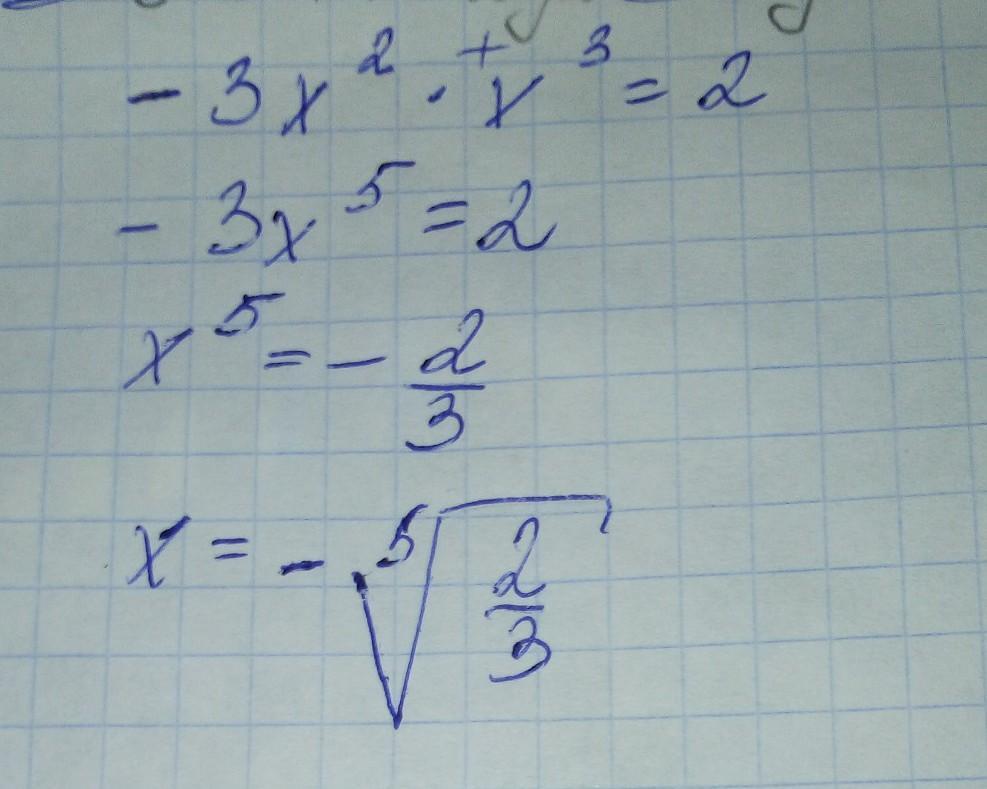 - 3x² · ⁺x³ = 2
- 3x⁵ = 2
x⁵ = - 2/3
x = - ⁵√(2/3)